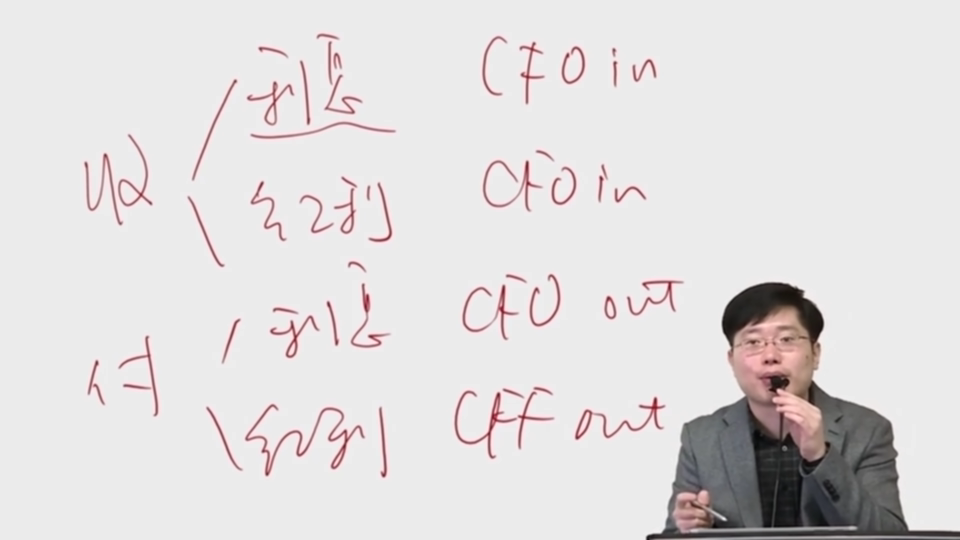 收 利息 CFO in
红利 CFO in
付 利息 CFO out
红利 CFF out